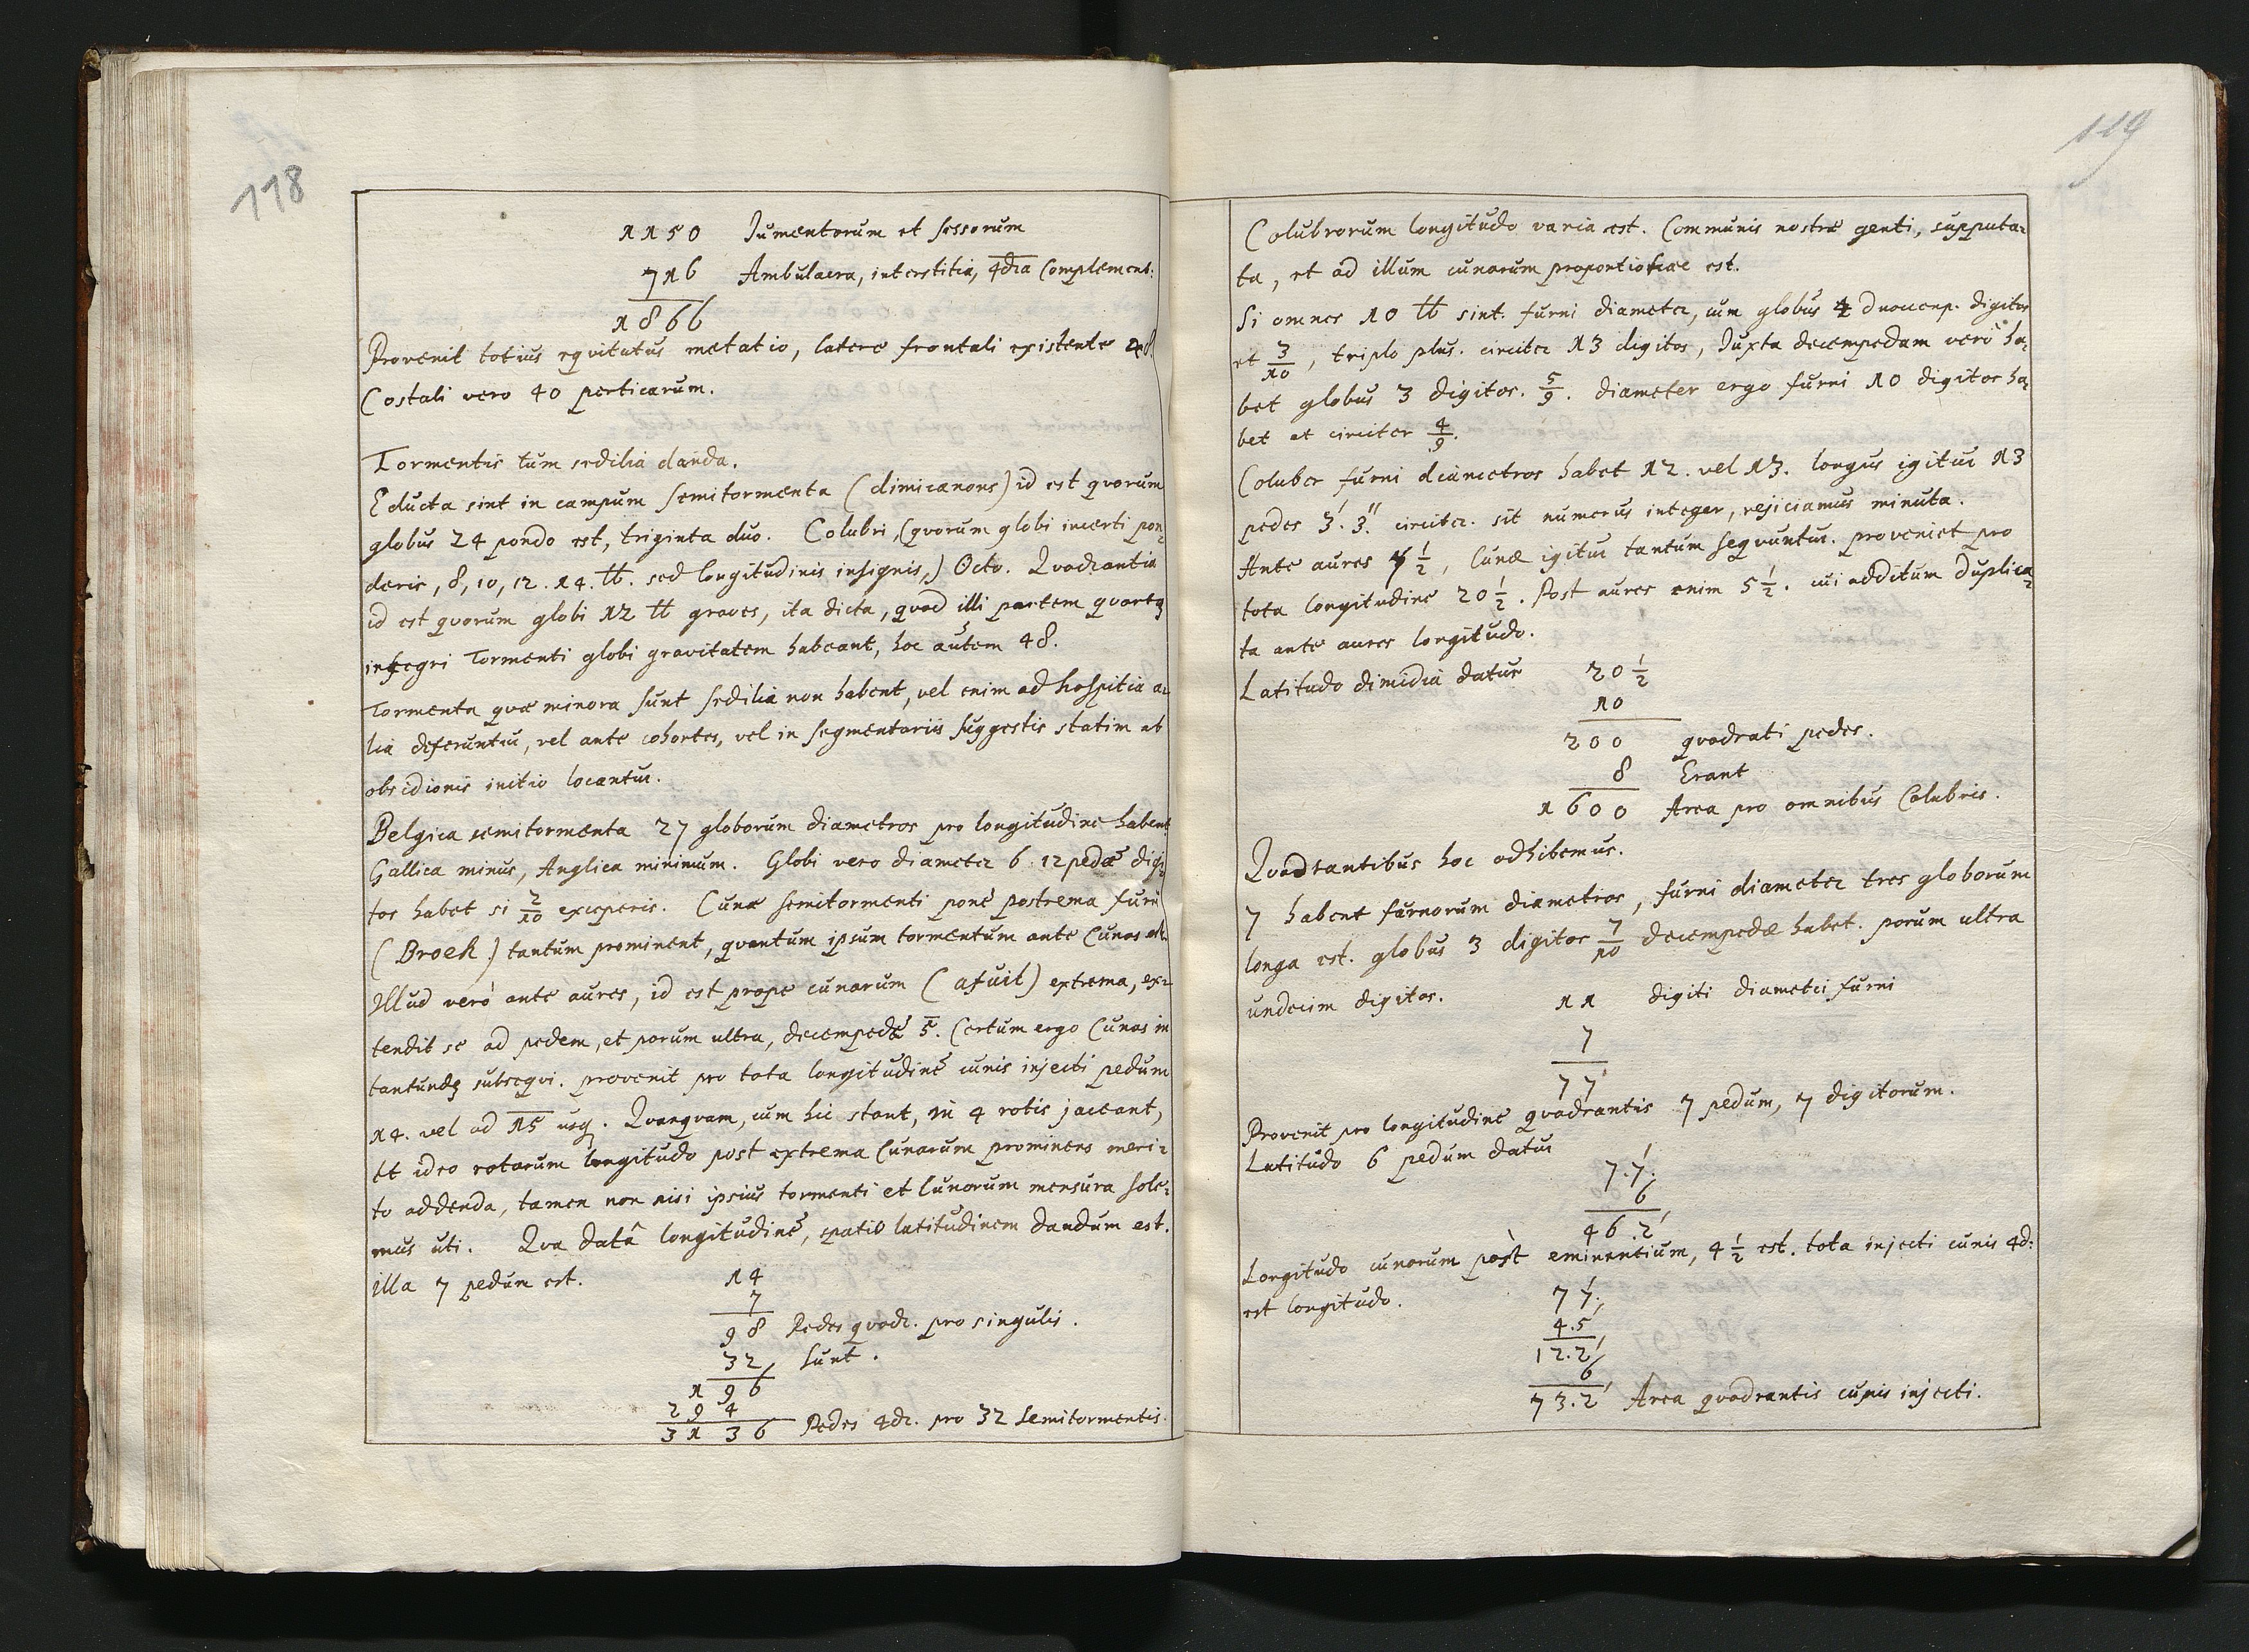 118
1150 Iumentorum et sessorum
716 Ambulacra, interstitia, 4dra Complement:
1866
Provenit totius eqvitatus metatio, latere frontali existente 28.
Costali vero 40 perticarum.
Tormentis tum sedilia danda.
Educta sint in campum semitormenta (dimicanons) id est qvorum
globus 24 pondo est, triginta duo. Colubri, (qvorum globi incerti pon¬
deris, 8, 10, 12. 14. ℔. sed longitudinis insignis,) Octo. Qvadrantia
id est qvorum globi 12 ℔ graves, ita dicta, qvod illi partem qvartã
integri Tormenti globi gravitatem habeant, hoc autem 48.
Tormenta qvæ minora sunt sedilia non habent, vel enim ad hospitia a¬
lia deferuntur, vel ante cohortes, vel in segmentariis suggestis statim ab
obsidionis initio locantur.
Belgica semitormenta 27 globorum diametros pro longitudine habent
Gallica minus, Anglica minimum. Globi vero diameter 6 12pedæ digi¬
tos habet si 2/10 exceperis. Cunæ semitormenti ponè postrema furni
(Broek) tantum prominent, qvantum ipsum tormentum ante Cunas est.
Illud verò ante aures, id est prope cunarum (afuit) extrema, ex¬
tendit se ad pedem, et parum ultra, decempedæ 5. Certum ergo Cunas in
tantundẽ subseqvi. provenit pro tota longitudine cunis injecti pedum
14. vel ad 15 usq. Qvanqvam, cum hic stant, in 4 rotis jaceant,
et ideo rotarum longitudo post extrema Cunarum prominens meri¬
to addenda, tamen non nisi ipsius tormenti et Cunarum mensura sole¬
mus uti. Qva datâ longitudine, spatio latitudinem dandum est.
illa 7 pedum est. 14
7
98 Pedes qvadr. pro singulis.
32 sunt.
196
294
3136 Pedes 4dr. pro 32 Semitormentis.
119
Colubrorum longitudo varia est. Communis nostræ genti, supputa¬
ta, et ad illum cunarum est.
Si omnes 10 ℔ sint. furni diameter, cum globus 4 duodecup. digitos
et 3/10, triplo plus. circiter 13 digitos, Iuxta decempedam verò ha¬
bet globus 3 digitos. 5/9. diameter ergo furni 10 digitos ha¬
bet et circiter 4/9.
Coluber furni diametros habet 12. vel 13. longus igitur 13
pedes 3'. 3''. circiter. sit numerus integer, rejiciamus minuta.
Ante aures 7 1/2, Cunæ igitur tantum seqvuntur. proveniet pro
tota longitudine 20 1/2. Post aures enim 5 1/2. cui additum duplica¬
ta ante aures longitudo.
Latitudo dimidia datur 20 1/2
10
200 qvadrati pedes.
8 Erant
1600 Area pro omnibus Colubris.
Qvadrantibus hoc adhibemus.
7 habent furnorum diametros, furni diameter tres globorum
longa est. globus 3 digitos 7/10 decempedæ habet. parum ultra
undecim digitos. 11 digiti diametri furni
7
77'
Provenit pro longitudine qvadrantis 7 pedum, 7 digitorum.
Latitudo 6 pedum datur 7.7'.
6
46.2'
Longitudo cunarum pòst eminentium, 4 1/2 est. tota injecti cunis 4d:
est longitudo. 7 7'.
4.5'
12.2'
6
73.2' Area qvadrantis cunis injecti.